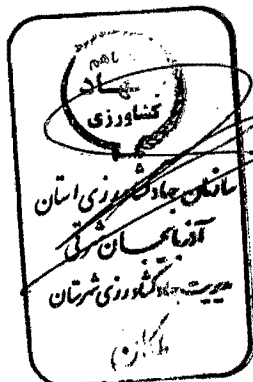 باهم
جهاد
کشاورزی
سازمان جهاد کشاورزی استان
آذربایجان شرقی
مدیریت جهاد کشاورزی شهرستان
ملکان